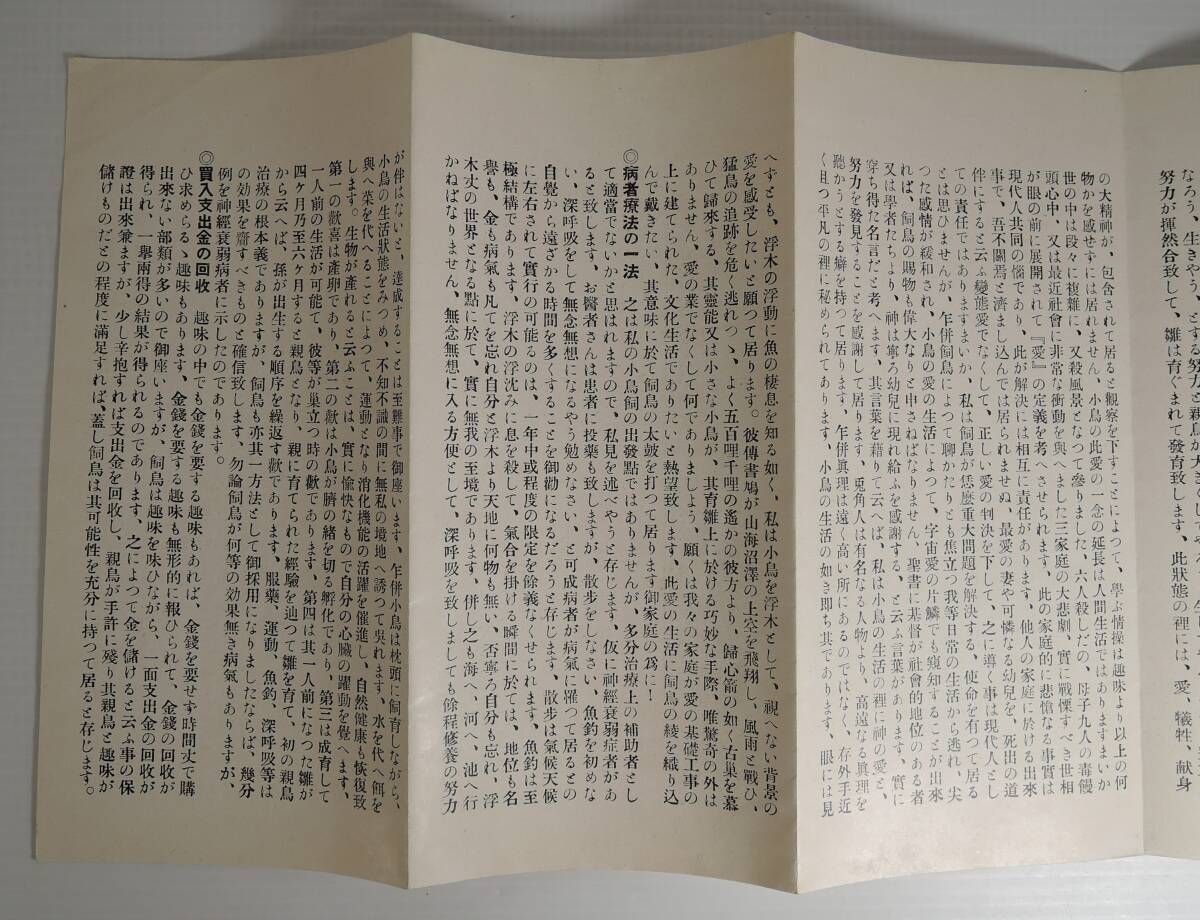 なろう、生きやう、とする努力と親鳥が
努力が揮然合致して、雛は育ぐまれて發育致します、此狀態の裡には、愛、犧牲、献身
の大精神が、包含されて居ると觀察を下すことによつて、學ぶ情操は趣味より以上の何
物かを感ぜずには居れません、小鳥の此愛の一念の延長は人間生活ではありますまいか
世の中は段々に複雜に、又殺風景となつて參りました、六人殺しだの、母子九人の毒饅
頭心中、又は最近社會に非常な衝動を與へました三家庭の大悲劇、實に戰慄すべき世相
が眼の前に展開されて『愛』の定義を考へさせられます、此の家庭的に悲愴なる事實は
現代人共同の惱であり、此が解決には相互に責任があります、他人の家庭に於ける出來
事で、吾不關焉と濟まし込んでは居られませぬ、最愛の妻や可憐なる幼兒を、死出の道
伴にすると云ふ變態愛でなくして、正しい愛の判決を下して、之に導く事は現代人とし
ての責任ではありますまいか、私は飼鳥が恁麽重大問題を解決する、使命を有つて居る
とは思ひませんが、乍併飼鳥によつて聊かたりとも焦立つ我等日常の生活から逃れ、尖
つた感情が緩和され、小鳥の愛の生活によつて、宇宙愛の片鱗でも窺知することが出來
れば、飼鳥の賜物も偉大なりと申さねばなりません、聖書に基督が社會的地位のある者
又は學者たちより、神は寧ろ幼兒に現れ給ふを感謝する、と云ふ言葉があります、實に
穿ち得た名言だと考へます、其言葉を藉りて云へば、私は小鳥の生活の裡に神の愛と、
努力を發見することを感謝して居ります、兎角人は有名なる人物より、高遠なる眞理を
聽かうとする癖を持つて居ります、乍併眞理は遠く高い所にあるのではなく、存外手近
く且つ平凡の裡に秘められてあります、小鳥の生活の如き即ち其であります、眼には見
へずとも、浮木の浮動に魚の棲息を知る如く、私は小鳥を浮木として、視へない背景の
愛を感受したいと願つて居ります。彼傳書鳩が山海沼澤の上空を飛翔し、風雨と戰ひ、
猛鳥の追跡を危く逃れつゝ、よく五百哩千哩の遙かの彼方より、歸心箭の如く古巢を慕
ひて歸來する、其靈能又は小さな小鳥が、其育雛上に於ける巧妙な手際、唯驚奇の外は
ありません、愛の業でなくして何でありましよう、願くは我々の家庭が愛の基礎工事の
上に建てられた、文化生活でありたいと熱望致します、此愛の生活に飼鳥の綾を織り込
んで戴きたい、其意味に於て飼鳥の太皷を打つて居ります御家庭の爲に!
◎病者療法の一法　之は私の小鳥飼の出發點ではありませんが、多分治療上の補助者とし
て適當でないかと思はれますので、私見を述べやうと存じます、仮に神經衰弱症者があ
ると致します、お醫者さんは患者に投藥も致しますが、散步をしなさい、魚釣を初めな
い、深呼吸をして無念無想になるやう勉めなさい、と可成病者が病氣に罹つて居るとの
自覺から遠ざかる時間を多くすることを御勸になるだろうと存じます、散步は氣候天候
に左右されて實行の可能るのは、一年中或程度の限定を餘義なくせられます、魚釣は至
極結構であります、浮木の浮沈みに息を殺して、氣合を掛ける瞬間に於ては、地位も名
譽も、金も病氣も凡てを忘れ自分と浮木より天地に何物も無い、否寧ろ自分も忘れ、浮
木丈の世界となる點に於て、實に無我の至境であります、併し之も海へ、河へ、池へ行
かねばなりません、無念無想に入る方便として、深呼吸を致しましても餘程修養の努力
が伴はないと、達成することは至難事で御座います、乍併小鳥は枕頭に飼育しながら、
小鳥の生活狀態をみつめ、不知不識の間に無私の境地へ誘つて吳れます、水を代へ餌を
與へ菜を代へることによつて、運動となり消化機能の活躍を催進し、自然健康も恢復致
します。生物が產れると云ふことは、實に愉快なもので自分の心臟の躍動を覺へます、
第一の歡喜は產卵であり、第二の歡は小鳥が臍の緖を切る孵化であり、第三は成育して
一人前の生活が可能て、彼等が巢立つ時の歡であります、第四は其一人前になつた雛が
四ケ月乃至六ケ月すると親鳥となり、親に育てられた經驗を辿つて雛を育て、初の親鳥
から云へば、孫が出生する順序を繰返す歡であります、服藥、運動、魚釣、深呼吸等は
治療の根本義でありますが、飼鳥も亦其一方法として御採用になりましたならば、幾分
の効果を齎すべきものと確信致します。勿論飼鳥が何等の効果無き病氣もありますが、
例を神經衰弱病者に示したのであります。
◎買入支出金の回收　趣味の中でも金錢を要する趣味もあれば、金錢を要せず時間丈で購
ひ求めらるゝ趣味もあります、金錢を要する趣味も無形的に報ひられて、金錢の回收が
出來ない部類が多いので御座いますが、飼鳥は趣味を味ひながら、一面支出金の回收が
得られ、一擧兩得の結果が得られるのであります、之によつて金を儲けると云ふ事の保
證は出來兼ますが、少し辛抱すれば支出金を回收し、親鳥が手許に殘り其親鳥と趣味が
儲けものだとの程度に滿足すれば、蓋し飼鳥は其可能性を充分に持つて居ると存じます。